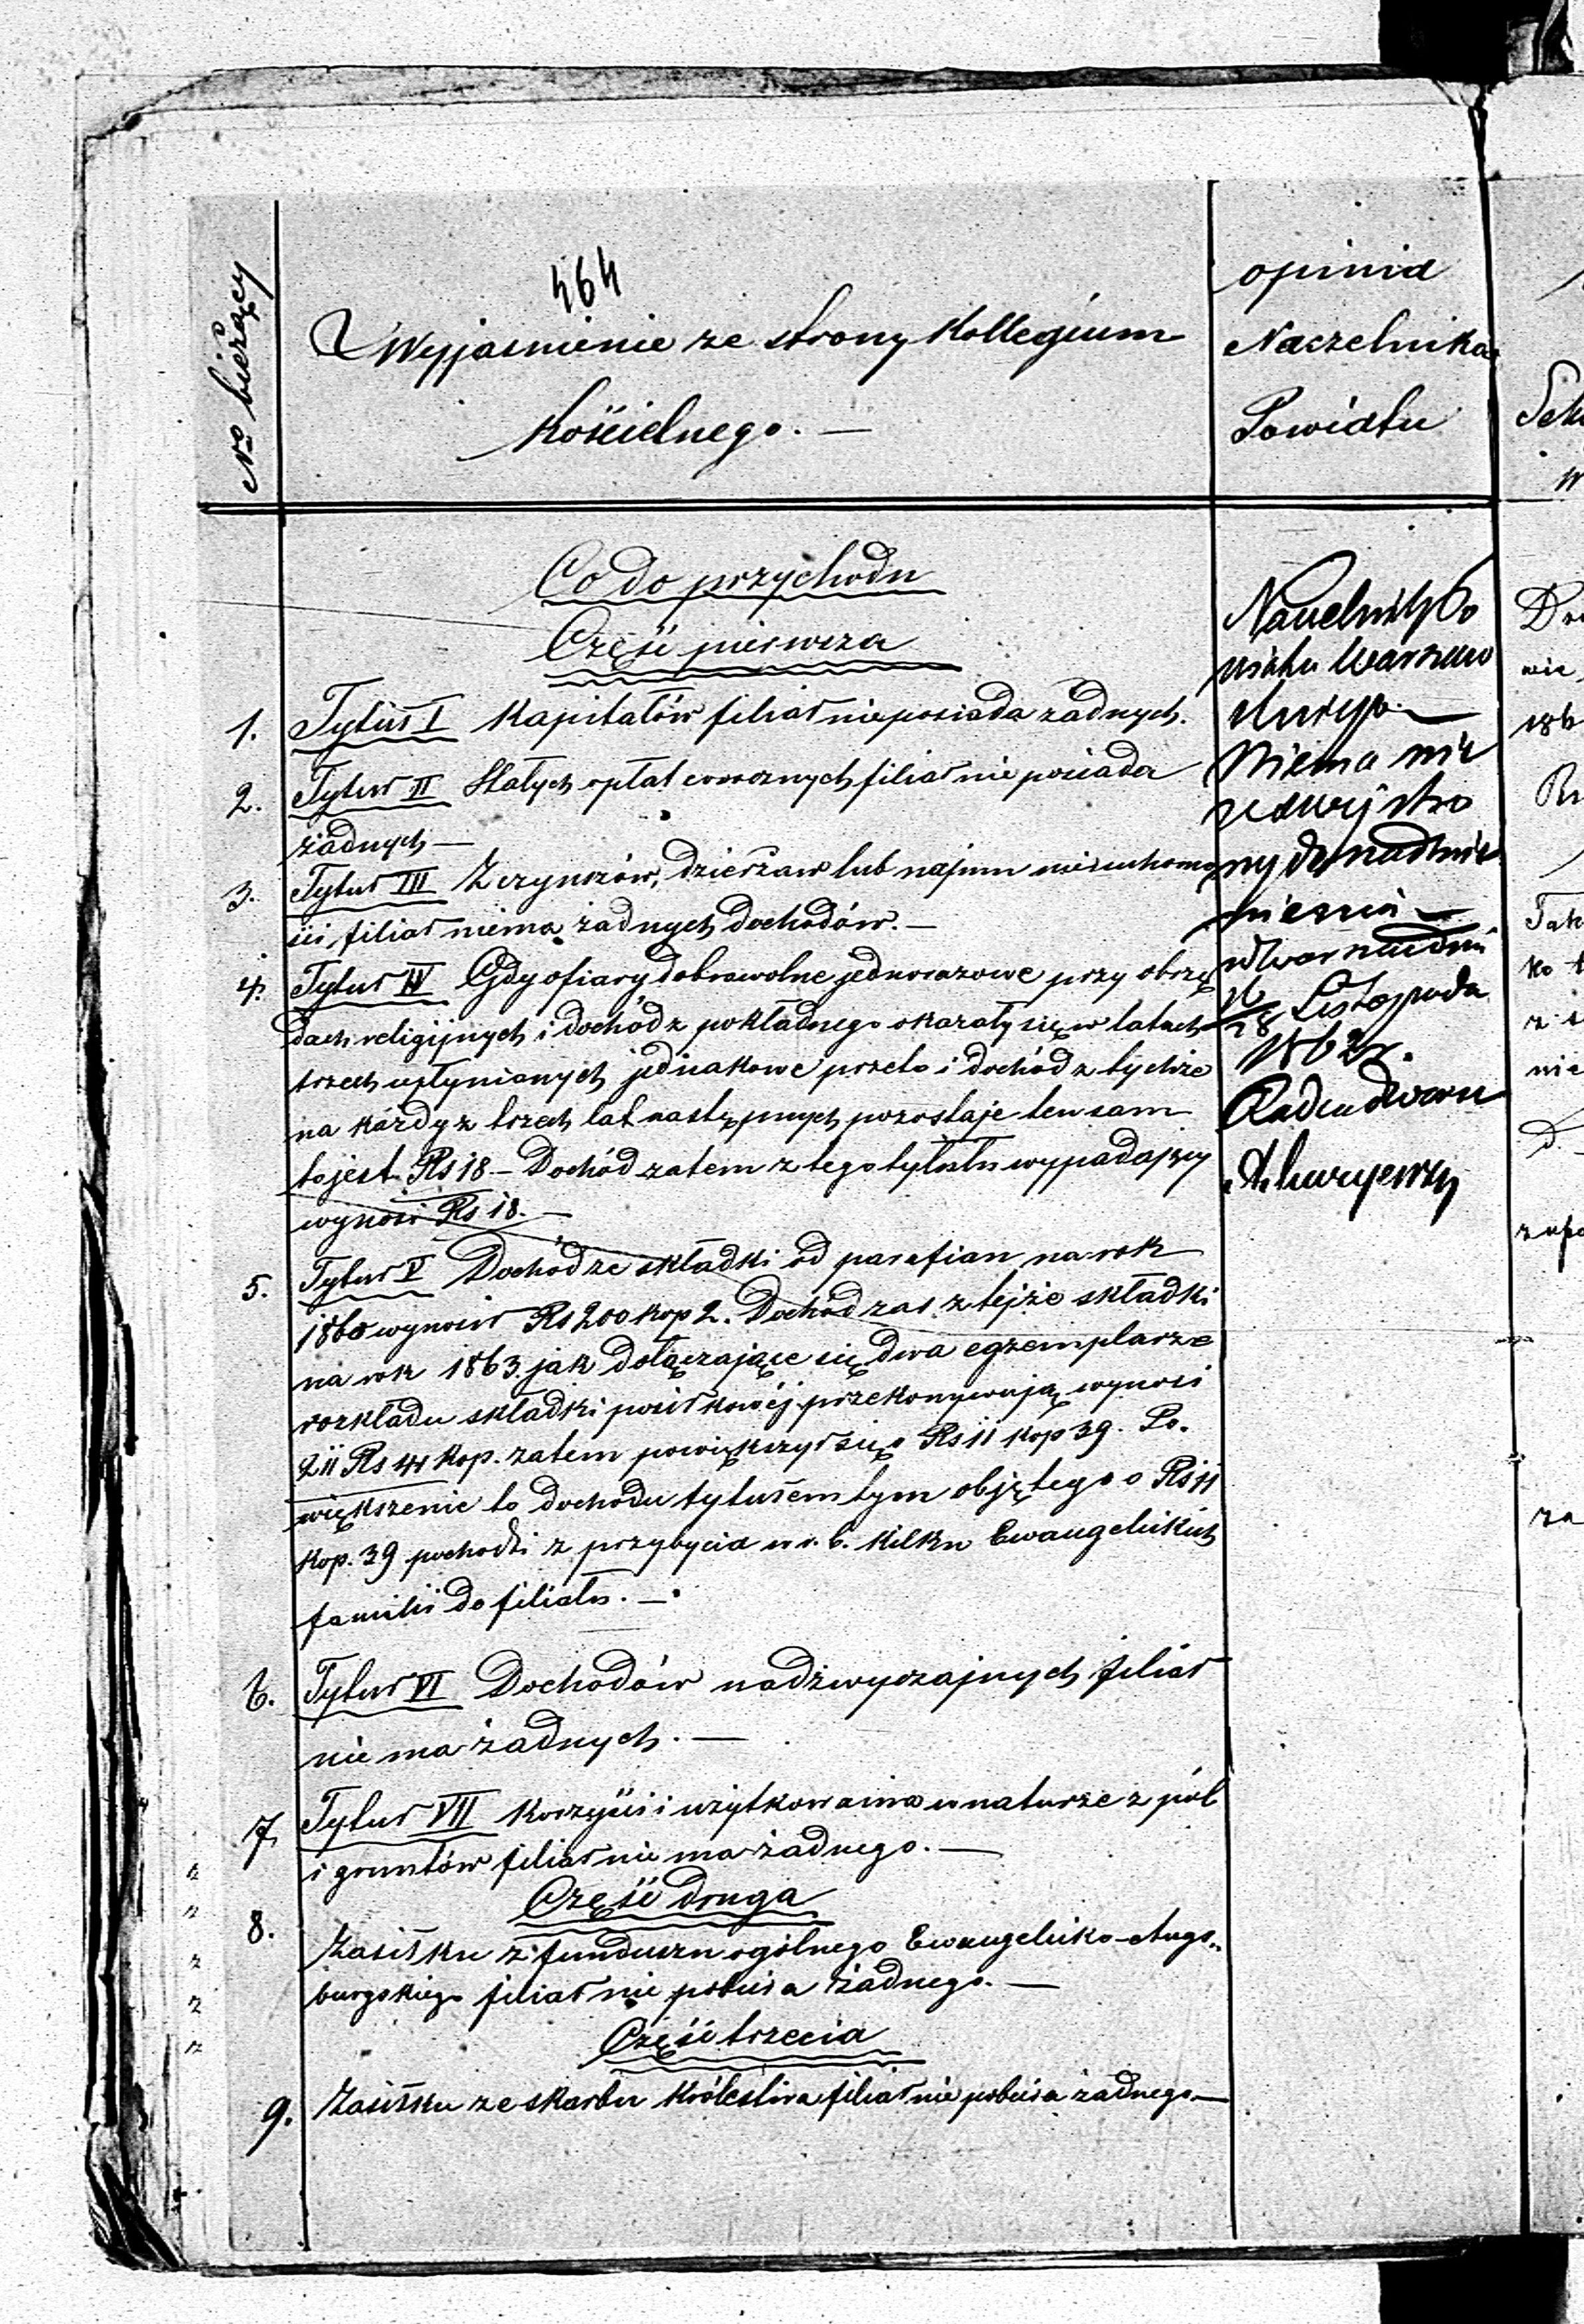 464
No bieżący
Wyjaśnienie ze strony Kollegium
Kościelnego. —
opinia
Naczelnika
Powiatu
Co do przychodu
Część pierwsza
1. Tytuł I Kapitałów filiał nieposiada żadnych.
2. Tytuł II Stałych opłat corocznych filiał nie posiada
żadnych —
3. Tytuł III Z czynszów, dzierżaw lub najmu nieruchomo
ści filiał niema żadnych dochodów. —
4. Tytuł IV Gdy ofiary dobrowolne jednorazowe przy obrzę
dach religijnych i dochód z pokładnego okazały się w latach
trzech upłynionych jednakowe przeto i dochód z tychże
na każdy z trzech lat następnych pozostaje ten sam
to jest Rs 18 — Dochód zatem z tego tytułu wypadający
wynosi Rs 18. —
5. Tytuł V Dochód ze składki od parafian na rok
1860 wynosił Rs 200 kop 2. Dochód zaś z tejże składki
na rok 1863. jak dołączające się dwa egzemplarze
rozkładu składki posiłkowéj przekonywują wynosi
211 Rs 41 kop. zatem powiększył się o Rs 11 kop 39. Po.
większenie to dochodu tytułem tym objętego o Rs 11
kop. 39 pochodzi z przybycia w r. b. kilku Ewangelickich
familii do filiału. —
6. Tytuł VI Dochodów nadzwyczajnych filiał
nie ma żadnych. —
7. Tytuł VII Korzyści i użytkowania w naturze z pól
i gruntów filiał nie ma żadnego. —
Część druga
8. Zasiłku z funduszu ogólnego Ewangelicko-Augs„
burgskiego filiał nie pobiera żadnego. —
Część trzecia
9. Zasiłku ze skarbu Królestwa filiał nie pobiera żadnego —
Naczelnik Po
wiatu Warszaw
skiego —
Niema nic
ze swej stro
ny do nadmie
nienia —
w Warszawie dnia
16/28 Listopada
1862 r.
Radca Dworu